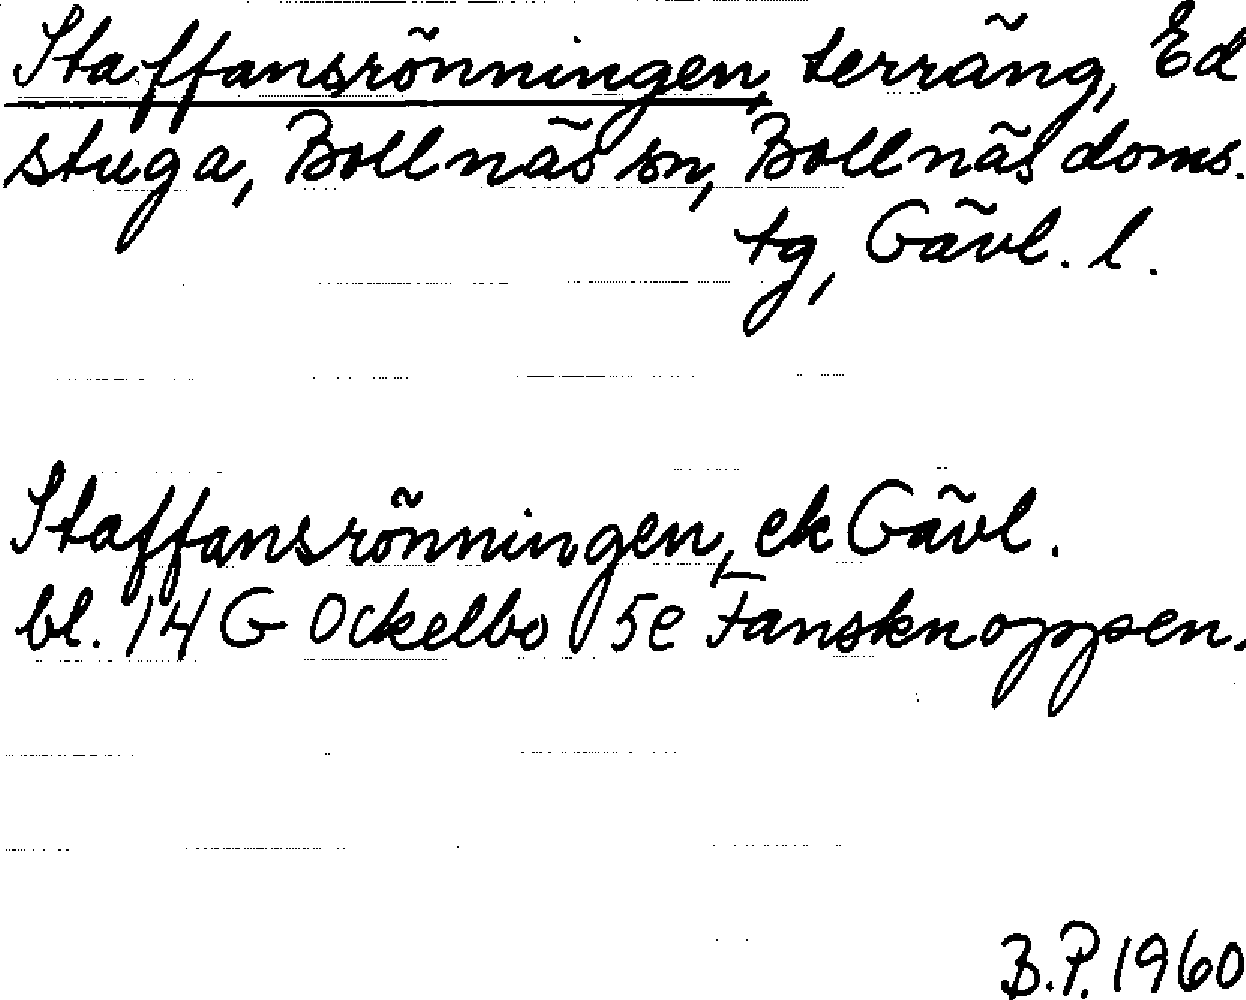 Staffansrönningen, terräng, Ed
stuga, Bollnäs sn, Bollnäs doms.
tg, Gävl. l.
Staffansrönningen, ek Gävl.
bl. 14 G Ockelbo 5e Fansknoppen.
B.P. 1960